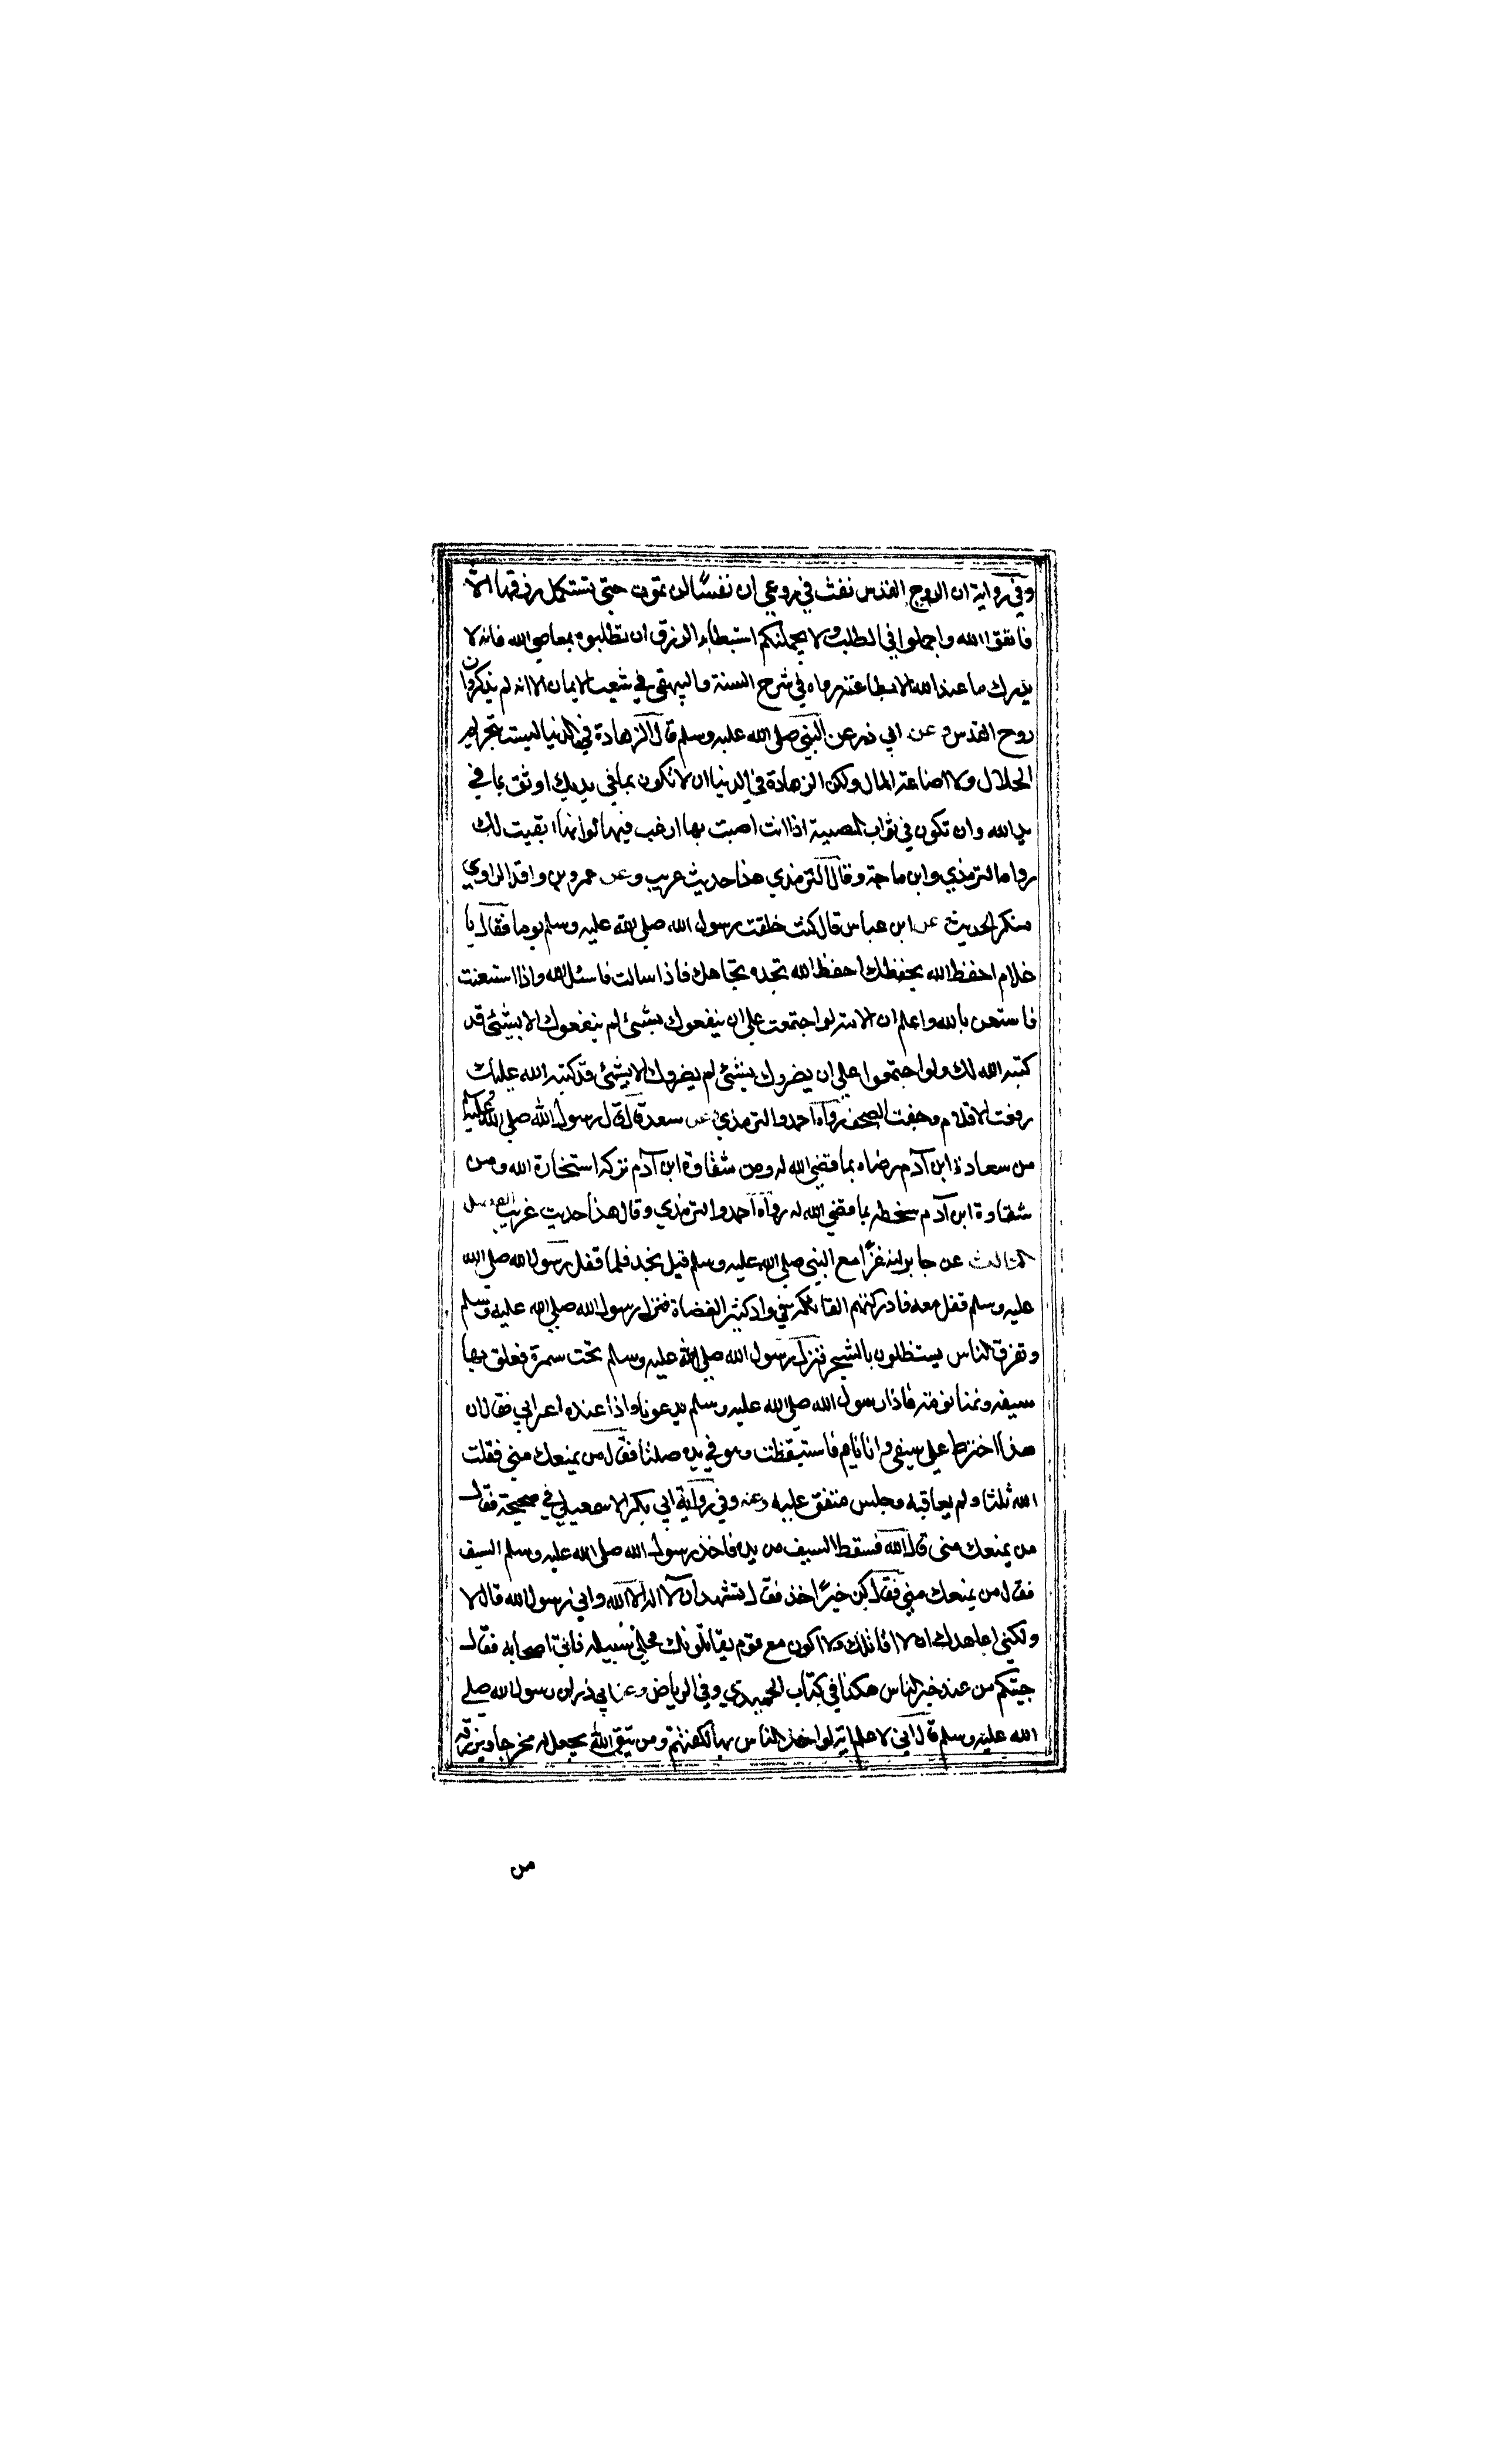 وفي رواية ان الروح القدس نفث في روعي ان نفسًا لن تموت حتى تستكمل رزقها الا
فاتقوا الله واجملوا في الطلب ولا يحملنكم استبطاء الرزق ان تطلبوه بمعاصي الله فانه لا
يدرك ما عند الله الا بطاعته رواه في شرح السنة والبيهقي في شعب الايمان الا انه لم يذكر وان
روح القدس وعن ابي ذر عن النبي صلى الله عليه وسلم قال الزهادة في الدنيا ليست بتحريم
الحلال ولا اضاعة المال ولكن الزهادة في الدنيا ان لا تكون بما في يديك اوثق بما في
يد الله وان تكون في ثواب المصيبة اذا انت اصبت بها ارغب فيها لو انها ابقيت لك
رواه الترمذي وابن ماجة وقال الترمذي هذا حديث غريب وعن عمرو بن واقد الراوي
منكر الحديث عن ابن عباس قال كنت خلفت رسول الله صلى الله عليه وسلم يوما فقال يا
غلام احفظ الله يحفظك احفظ الله تجده تجاهك فاذا سالت فاسئل الله واذا استعنت
فاستعن بالله واعلم ان الامة لو اجتمعت على ان ينفعوك بشئ لم ينفعوك الا بشئ قد
كتبه الله لك ولو اجتمعوا على ان يضروك بشئ لم يضروك الا بشئ قد كتبه الله عليك
رفعت الاقلام وجفت الصحف رواه احمد والترمذي عن سعد قال قال رسول الله صلى الله عليه وسلم
من سعادة ابن آدم رضاه بما قضى الله له ومن شقاوة ابن آدم تركه استخارة الله ومن
شقاوة ابن آدم سخطه بما قضى الله له رواه احمد والترمذي وقال هذا حديث غريب الفصل
الثالث عن جابر انه غزا مع النبي صلى الله عليه وسلم قبل نجد فلما قفل رسول الله صلى الله
عليه وسلم قفل معه فادركتهم القائلة في واد كثير العضاة فنزل رسول الله صلى الله عليه وسلم
وتفرق الناس يستظلون بالشجر فنزل رسول الله صلى الله عليه وسلم تحت سمرة فعلق بها
سيفه ونمنا نومة فاذا رسول الله صلى الله عليه وسلم يدعونا واذا عنده اعرابي فقال ان
هذا اخترط علي سيفي وانا نايم فاستيقظت وهو في يده صلتا فقال من يمنعك مني فقلت
الله ثلثا ولم يعاقبه وجلس متفق عليه وعنه وفي رواية ابي بكر الاسمعيلي في صحيحة فقال
من يمنعك مني قال الله فسقط السيف من يده فاخذ رسول الله صلى الله عليه وسلم السيف
فقال من يمنعك مني فقال كن خيرًا اخذ فقال تشهد ان لا اله الا الله واني رسول الله قال لا
ولكني اعاهدك ان لا اقاتلك ولا اكون مع قوم يقاتلونك فخلي سبيله فاتى اصحابه فقال
جيتكم من عند خير الناس هكذا في كتاب الحميدي وفي الرياض وعن ابي ذر ان رسول الله صلى
الله عليه وسلم قال اني لاعلم اية لو اخذ الناس بها لكفتهم ومن يتق الله يجعل له مخرجا ويرزقه
من